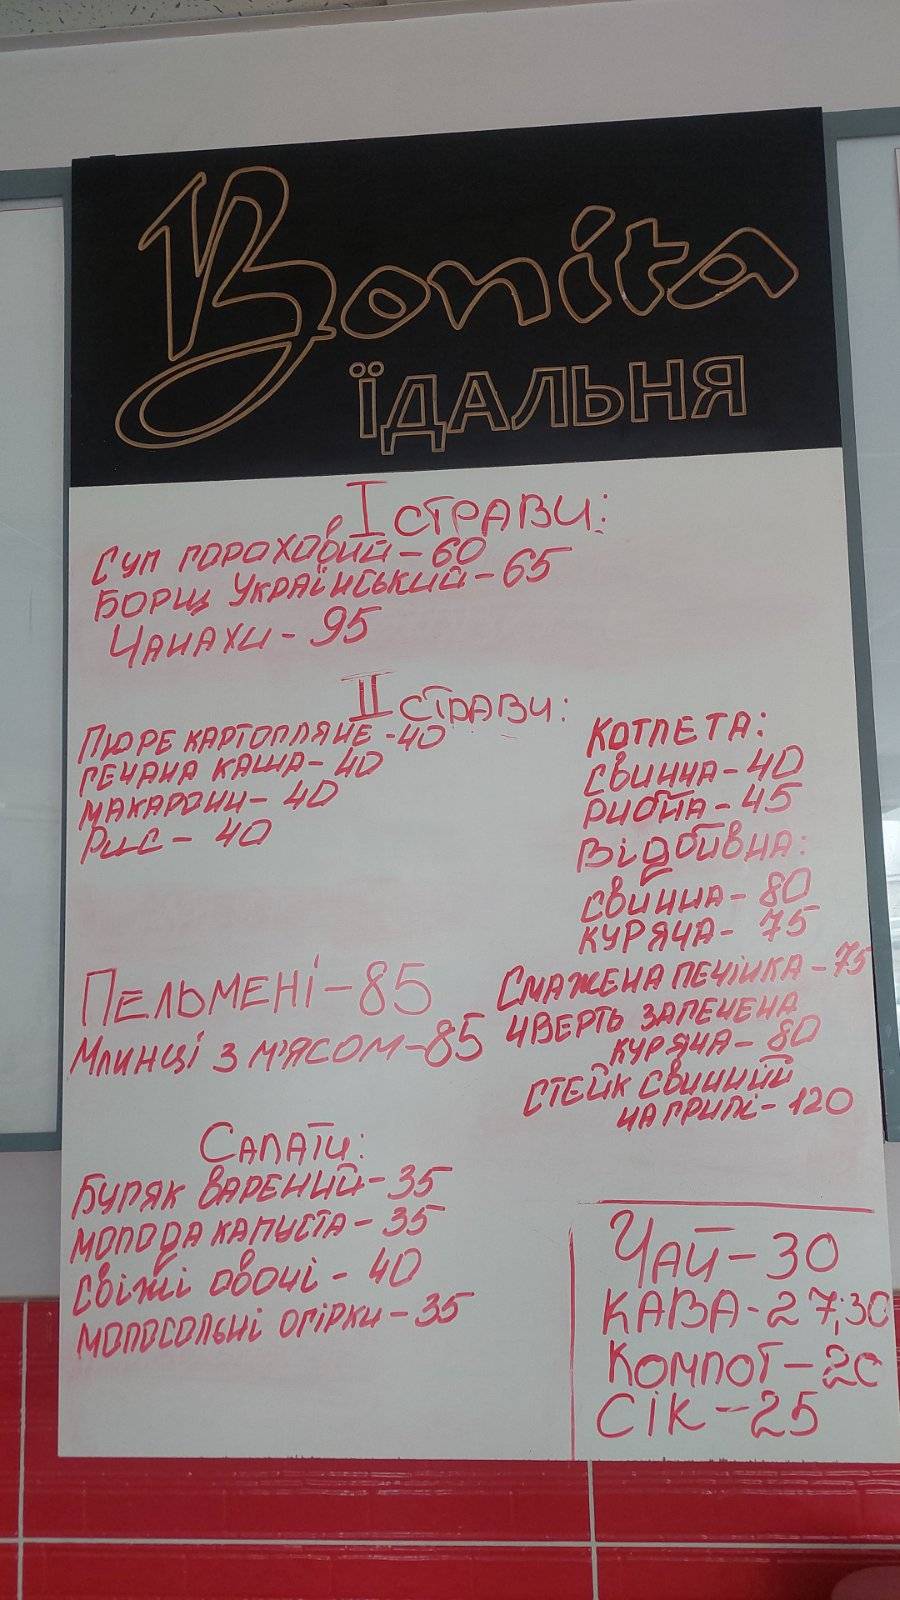 Bonita
ЇДАЛЬНЯ
I СТРАВИ:
Суп гороховий - 60
Борщ Український - 65
Чанахи - 95
II СТРАВИ:
Пюре картопляне - 40
Гечана каша - 40
Макарони - 40
Рис - 40
Пельмені - 85
Млинці з м'ясом - 85
Салати:
Буряк варений - 35
Молода капуста - 35
Свіжі овочі - 40
Молосольні огірки - 35
Котлета:
Свинна - 40
Рибна - 45
Відбивна:
Свинна - 80
Куряча - 75
Смажена печінка - 75
Чверть запечена
куряча - 80
Стейк свинний
на грилі - 120
Чай - 30
Кава - 27; 30
Компот - 20
Сік - 25